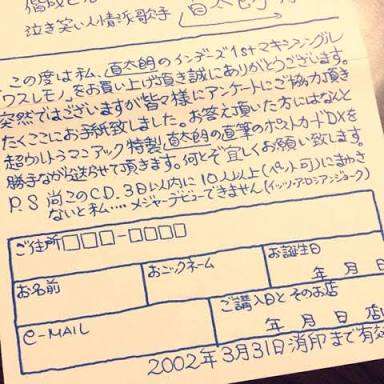 泣き笑い人情派歌手
直太朗
この度は私、直太朗のインデーズ1stマキシシングル
「ワスレモノ」をお買い上げ頂き誠にありがとうございます。
突然ではございますが皆々様にアンケートにご協力頂き
たくここにお手紙致しました。お答え頂いた方にはなんと
超ウルトラマニアック特製、直太朗の直筆のポストカードDXを
勝手ながら送らせて頂きます。何とぞ宜しくお願い致します。
P.S 尚このCD、3日以内に10人以上(ペット可)にまわさ
ないと私……メジャーデビューできません(イッツ・ア・ロシアンジョーク)
ご住所□□□-□□□□
お名前 おニックネーム お誕生日
年 月 日
e-MAIL ご購入日とそのお店
年 月 日 店
2002年3月31日消印まで有効